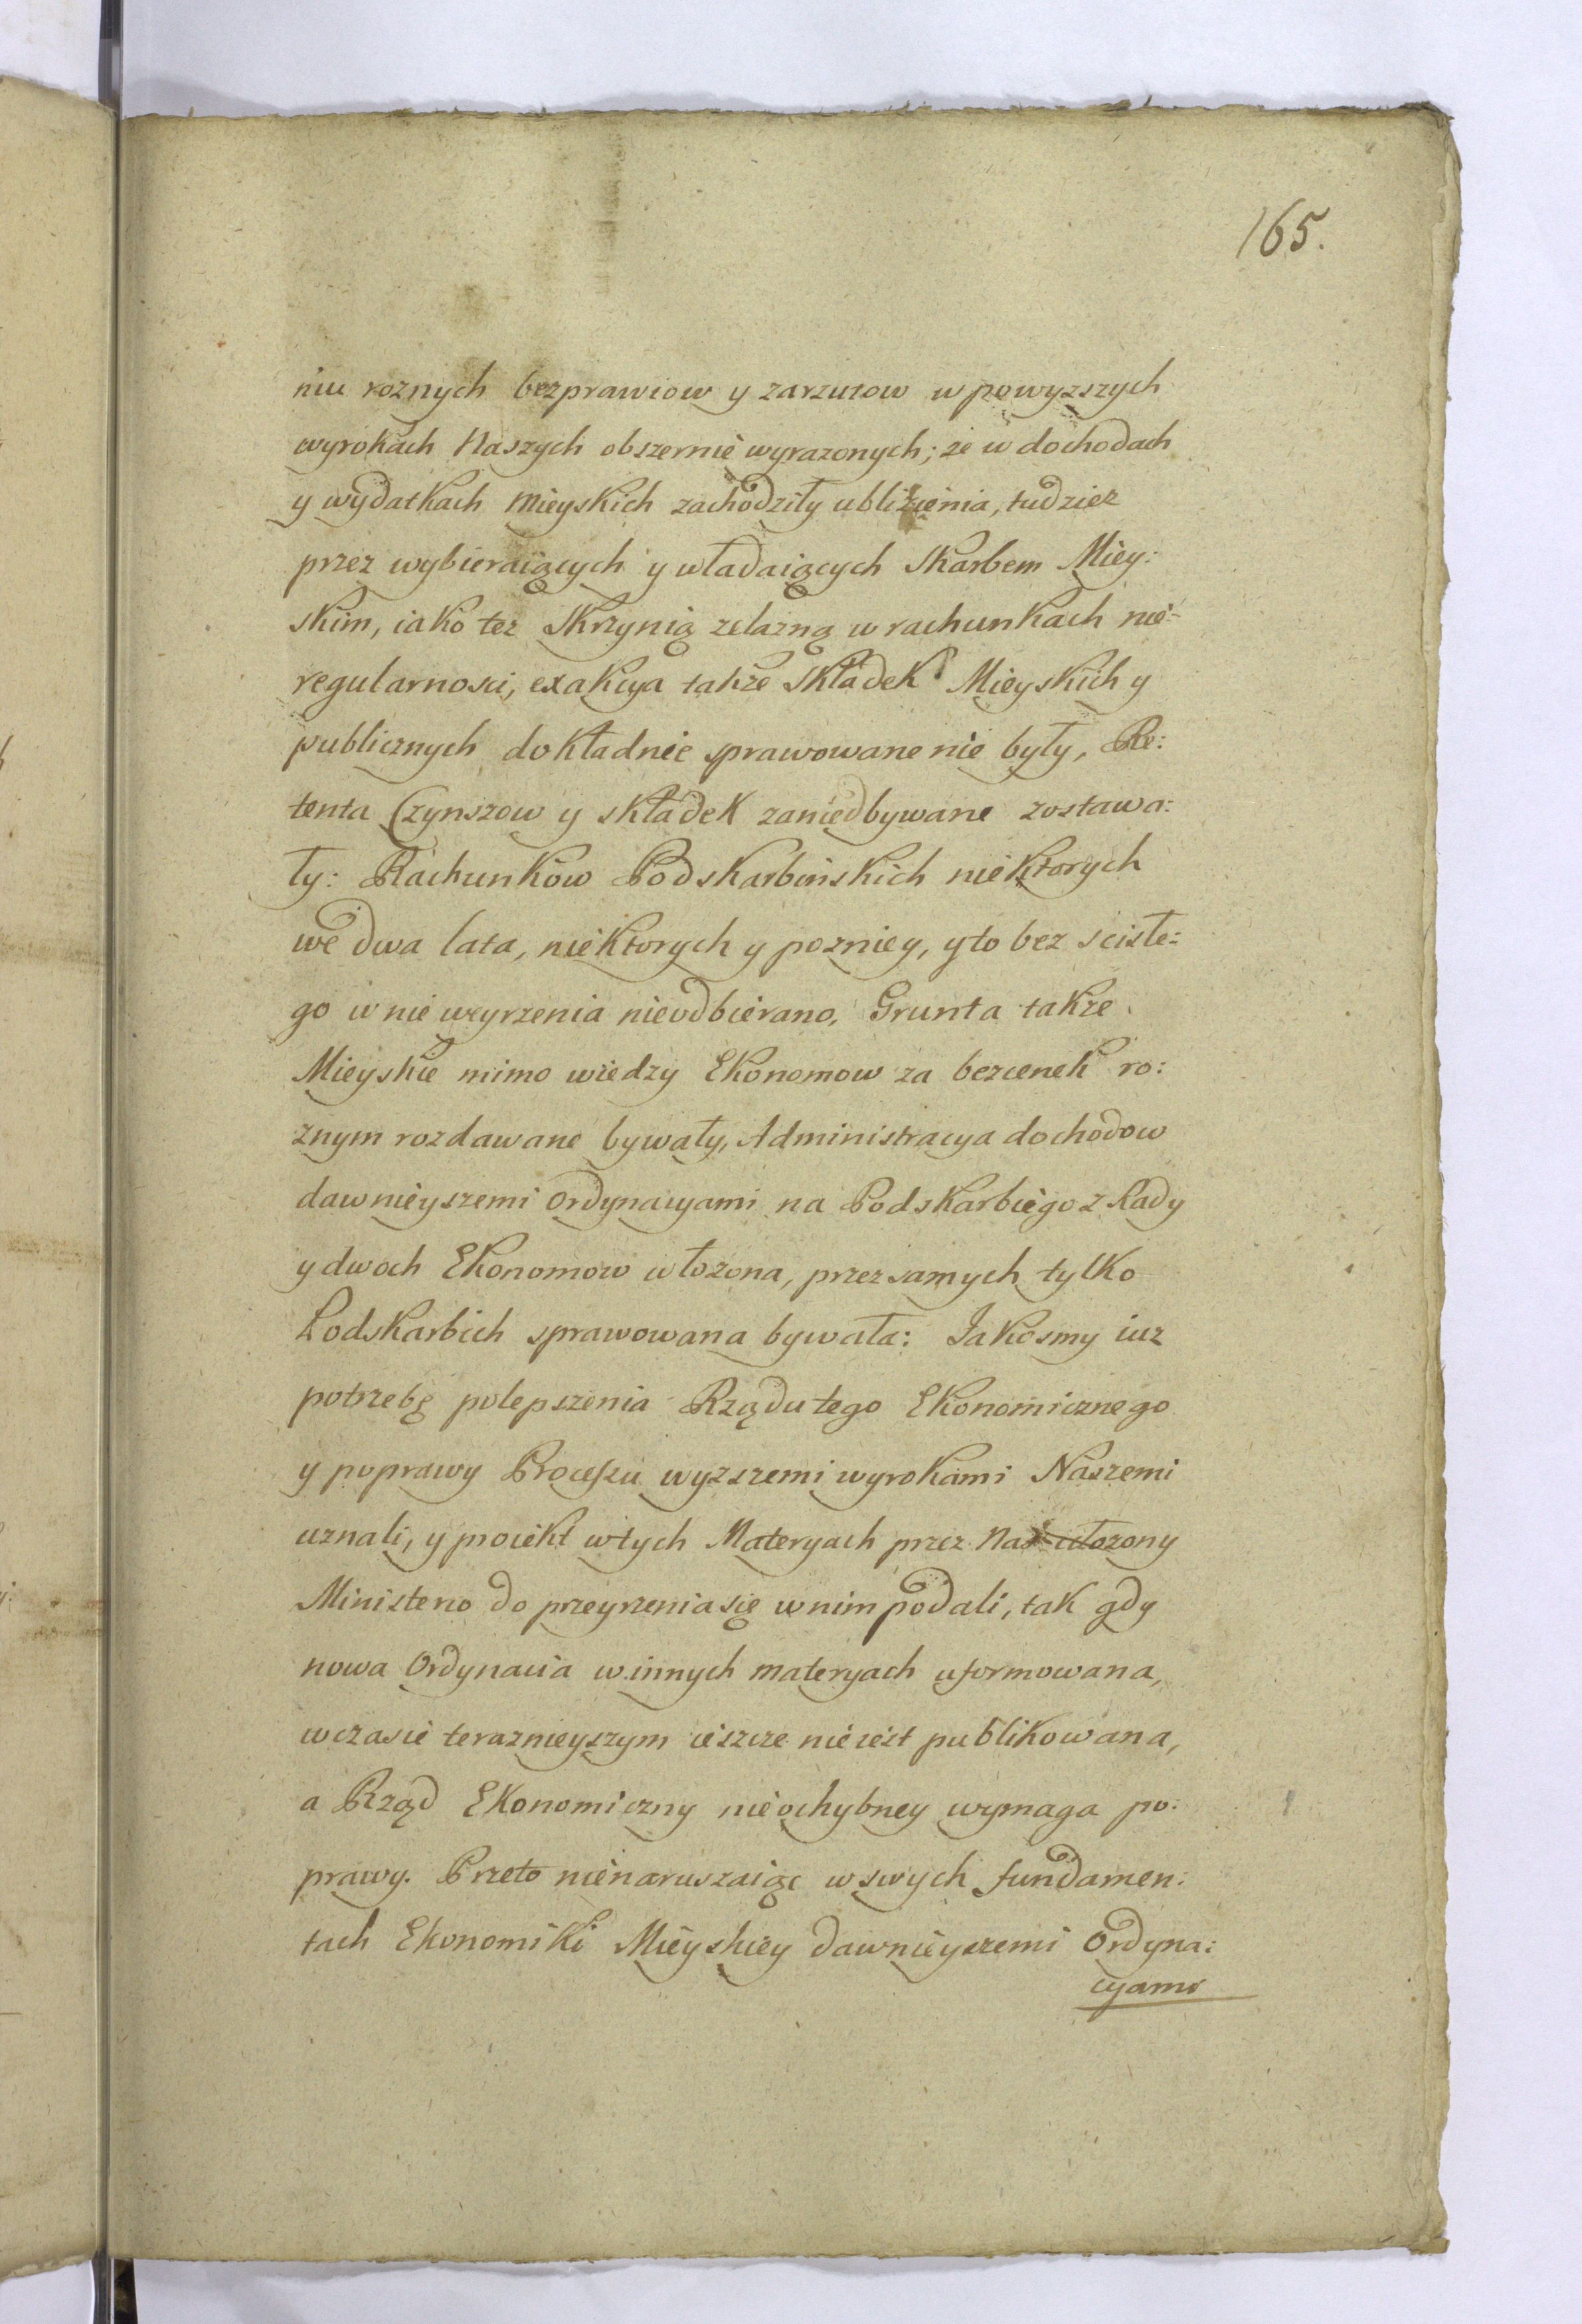 165.
niu roznych bezprawiow y zarzutow w powyzszych
wyrokach Naszych obszernie wyrazonych; ze w dochodach
y wydatkach Mieyskich zachodziły ubliżienia, tudziez
przez wybieraiących y władaiących Skarbem Miey:
skim, iako tez Skrzynią zelazną w rachunkach nie-
regularnosci, exakcya takze Składek Mieyskich y
publicznych dokładnie sprawowane nie były, Re:
tenta Czynszow y składek zaniedbywane zostawa:
ły: Rachunkow Podskarbinskich niektorych
we dwa lata, niektorych y pozniey, y to bez sciste:
go w nie weyrzenia nieodbierano, Grunta takze
Mieyskie mimo wiedzy Ekonomow za bezcenek ro:
znym rozdawane bywały, Administracya dochodow
dawnieyszemi Ordynacyami na Podskarbiego z Rady
y dwoch Ekonomow włozona, przez samych tylko
Podskarbich sprawowana bywała: Jakosmy iuz
potrzebę polepszenia Rządu tego Ekonomicznego
y poprawy Processu wyzszemi wyrokami Naszemi
uznali, y proiekt w tych Materyach przez Nas ułozony
Ministerio do przeyrzenia się w nim podali, tak gdy
nowa Ordynacia w innych materyach uformowana,
w czasie teraznieyszym ieszcze nie iest publikowana,
a Rząd Ekonomiczny nieochybney wymaga po:
prawy. Przeto nienaruszaiąc w swych fundamen:
tach Ekonomiki Mieyskiey dawnieyszemi Ordyna:
cyami